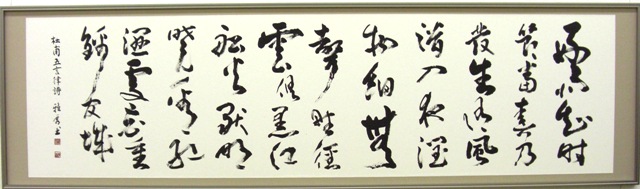 好雨知時
節當春乃
發生随風
潜入夜潤
物細無
聲野徑
雲俱黒江
船火獨明
暁看紅
濕處花重
錦官城
杜甫五言律詩